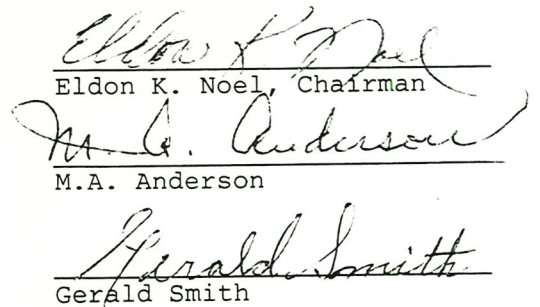 Eldon K Noel
Eldon K. Noel, Chairman
M. A. Anderson
M.A. Anderson
Gerald Smith
Gerald Smith